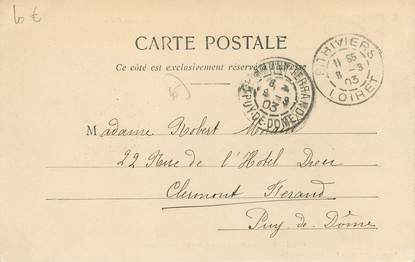 10 €
CARTE POSTALE
Ce côté est exclusivement réservé
PITHIVIERS
11 55
8 -3
03
LOIRET
9 -3
03
PUY-DE-DOME
Madame Robert
22 Rue de l'Hotel Dieu
Clermont Ferand
Puy-de-Dôme